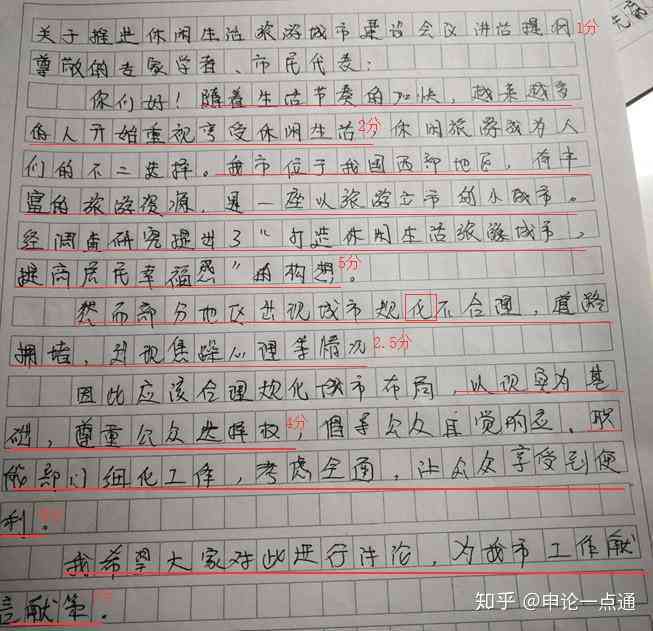 关于推进休闲生活旅游城市建设会议讲话提纲 1分
尊敬的专家学者、市民代表：
你们好！随着生活节奏的加快，越来越多
的人开始重视享受休闲生活 2分 休闲旅游成为人
们的不二选择。我市位于我国西部地区，有丰
富的旅游资源，是一座以旅游立市的小城市。
经调查研究提出了“打造休闲生活旅游城市，
提高居民幸福感”的构想 5分 。
然而部分地区出现城市规化不合理，道路
拥堵，出现焦躁心理等情况 2.5分
因此应该合理规化城市布局，以现实为基
础，尊重公众选择权 4分，倡导公众自觉响应，职
能部门细化工作，考虑全面，让公众享受到便
利。
我希望大家对此进行讨论，为我市工作献
言献策。
知乎 @申论一点通